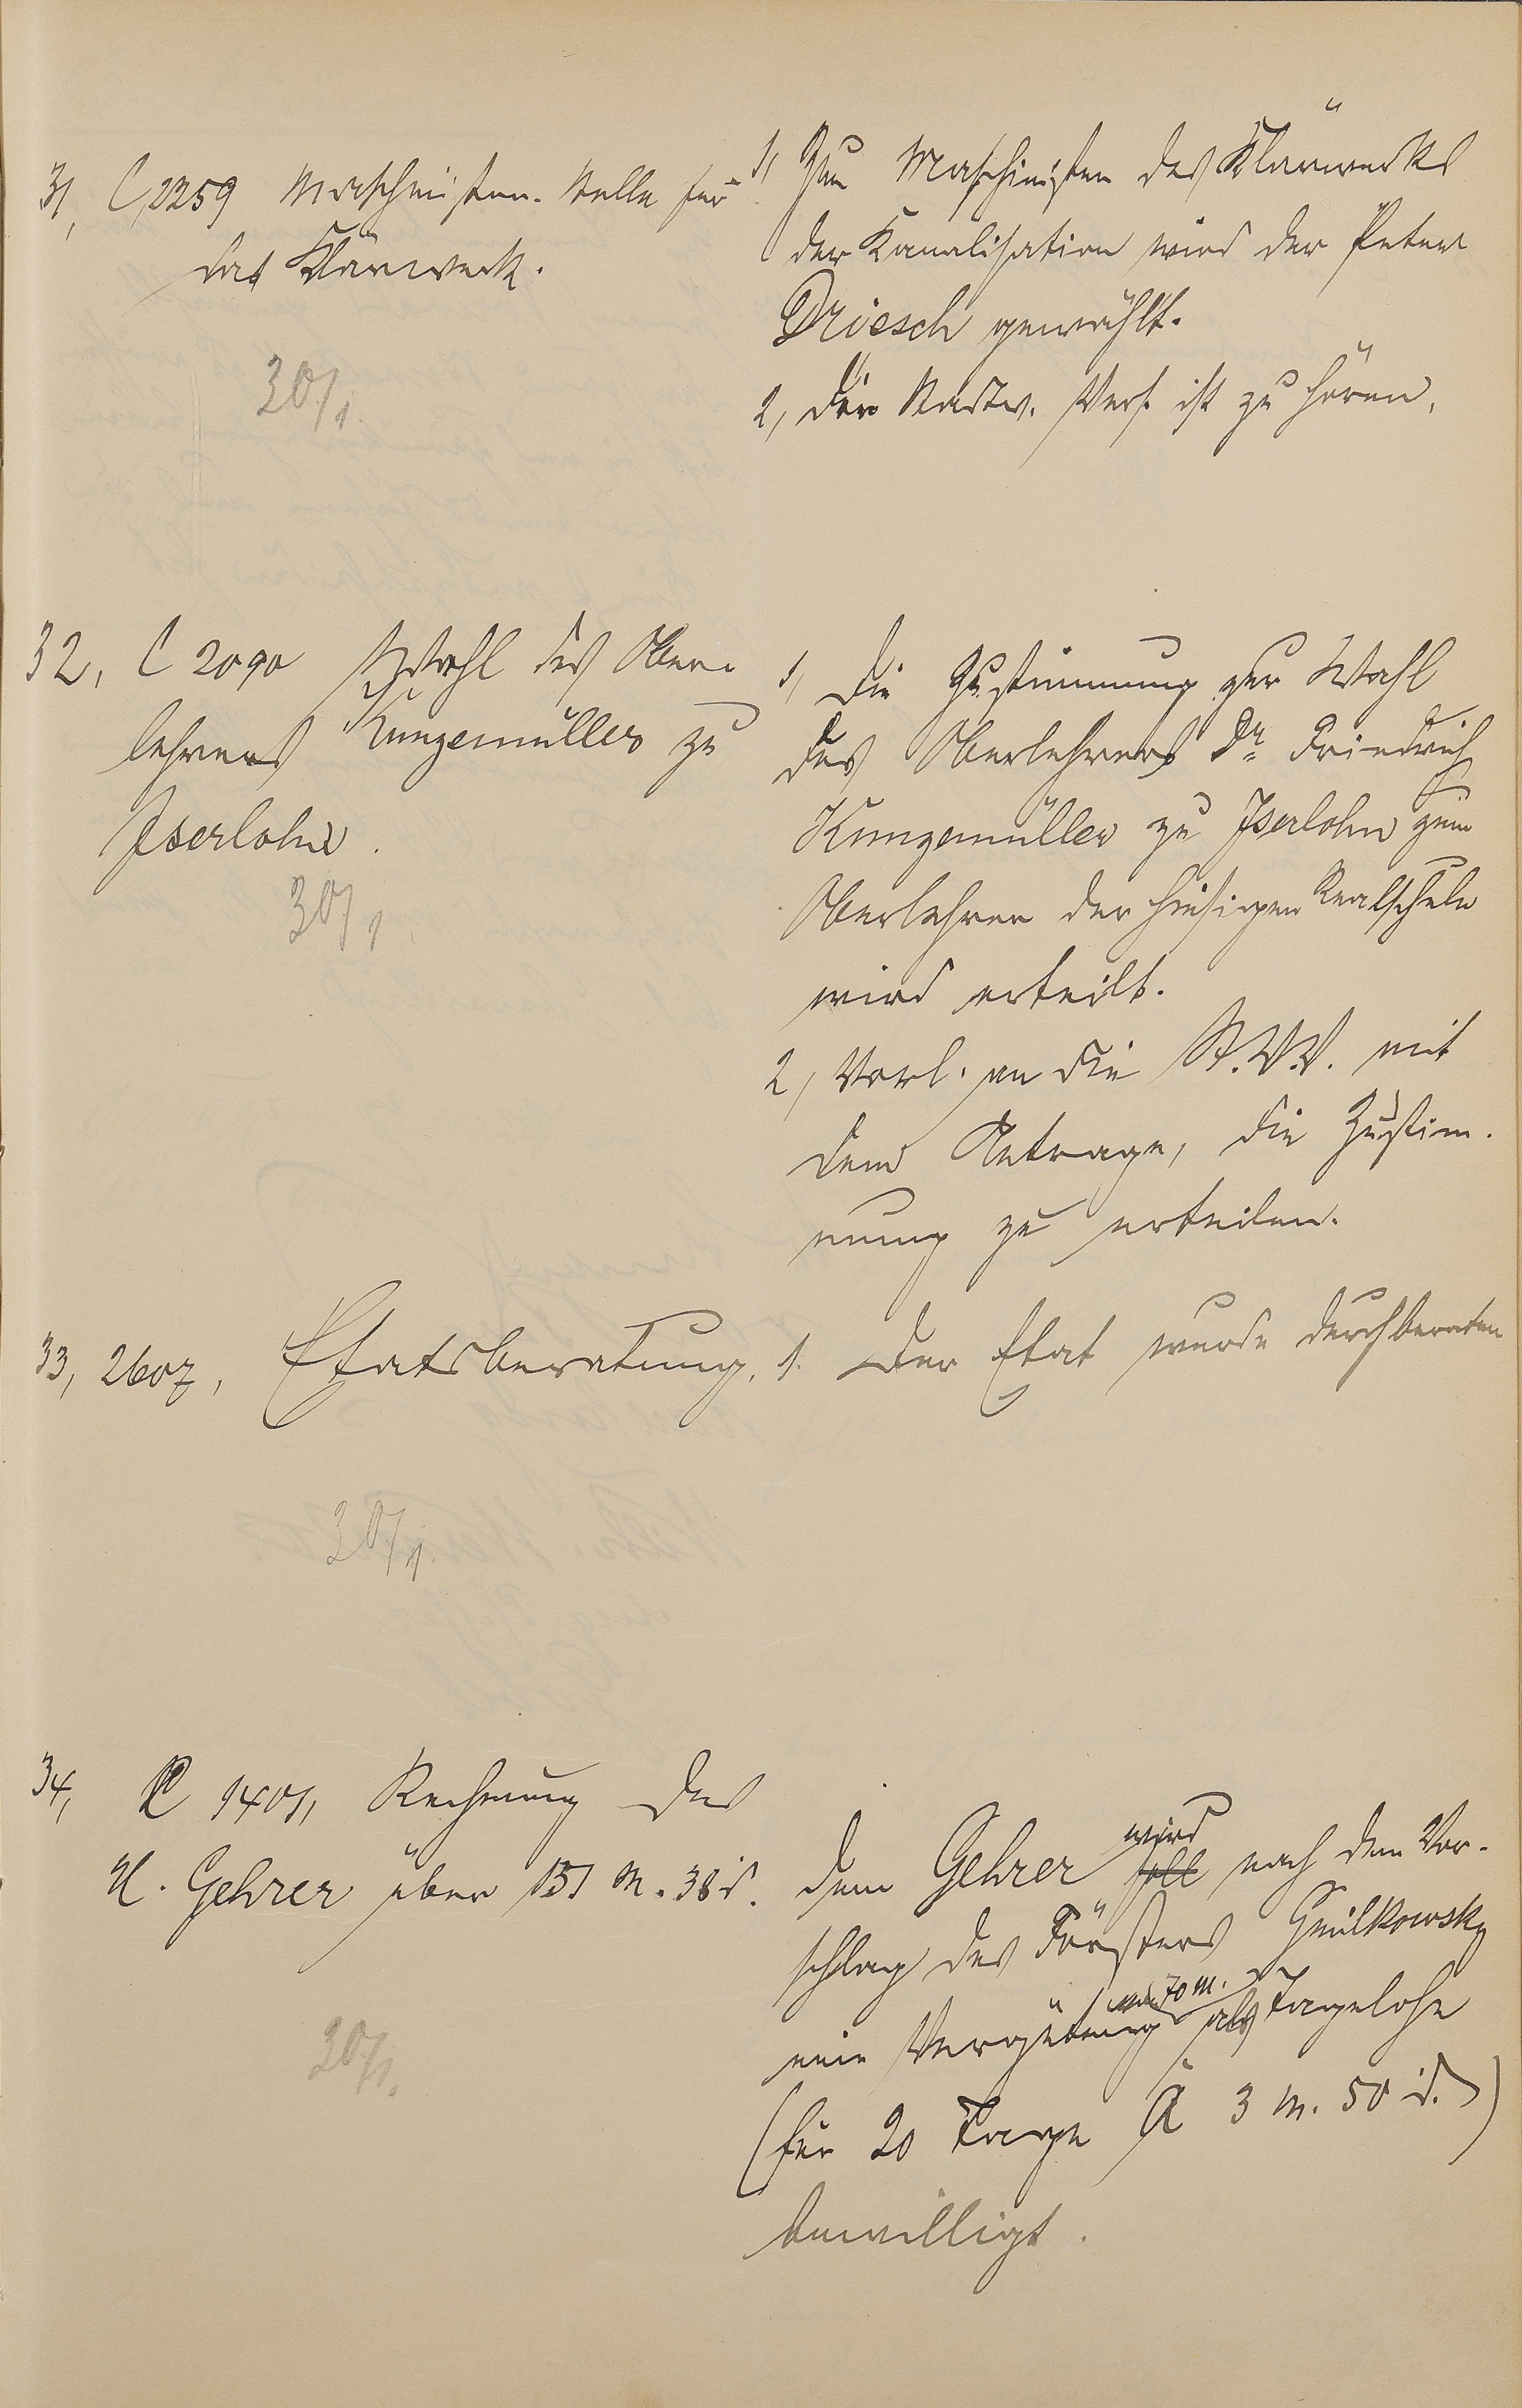 31, C, 2259 Maschinisten-Stelle für
das Klärwerk.
30/1.
1, Zum Maschinisten des Klärwerks
der Kanalisation wird der Peter
Driesch gewählt.
2, Die Stadtv. Vers. ist zu hören.
32, C 2090 Wahl des Ober-
lehrers Kunzemüller zu
Iserlohn.
30/1
1, Die Zustimmung zur Wahl
des Oberlehrers Dr. Friedrich
Kunzemüller zu Iserlohn zum
Oberlehrer der hiesigen Realschule
wird erteilt.
2, Vorl. an die St.V.V. mit
dem Antrage, die Zustim-
mung zu erteilen.
33, 2607, Etatsberatung.
30/1.
1. Der Etat wurde durchberaten
34, C 1401, Rechnung des
H. Gehrer über 151 M. 38 d.
30/1.
Dem Gehrer soll wird nach dem Vor-
schlag des Försters Gmilkowsky
eine Vergütung von 70 M. als Tagelohn
(für 20 Tage à 3 M. 50 d.)
bewilligt.